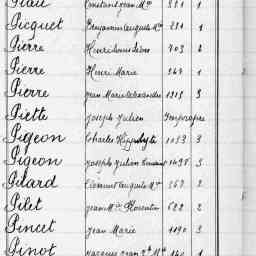 Constant Jean Mie 331 1
Picquet Benjamin Auguste Mie 281 1
Pierre Henri Louis 403 2
Pierre Henri Marie 969 1
Pierre Jean Marie Alexandre 1218 3
Piette Joseph Julien Impropre
Pigeon Charles Hippolyte 1053 3
Pigeon Joseph Julien 1498 3
Pilard Auguste Mie 367 2
Pilet Jean Mie Florentin 622 2
Pincet Jean Marie 1190 3
Pinot Jacques Jean 1